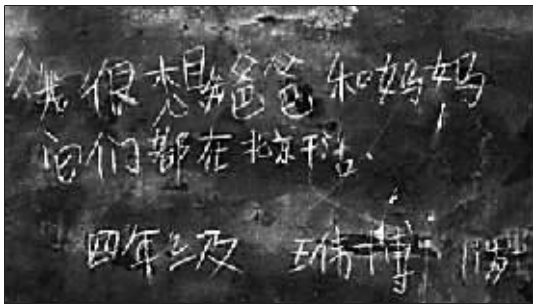 我很想爸爸和妈妈
他们都在北京干活、
四年级 王伟博 11岁